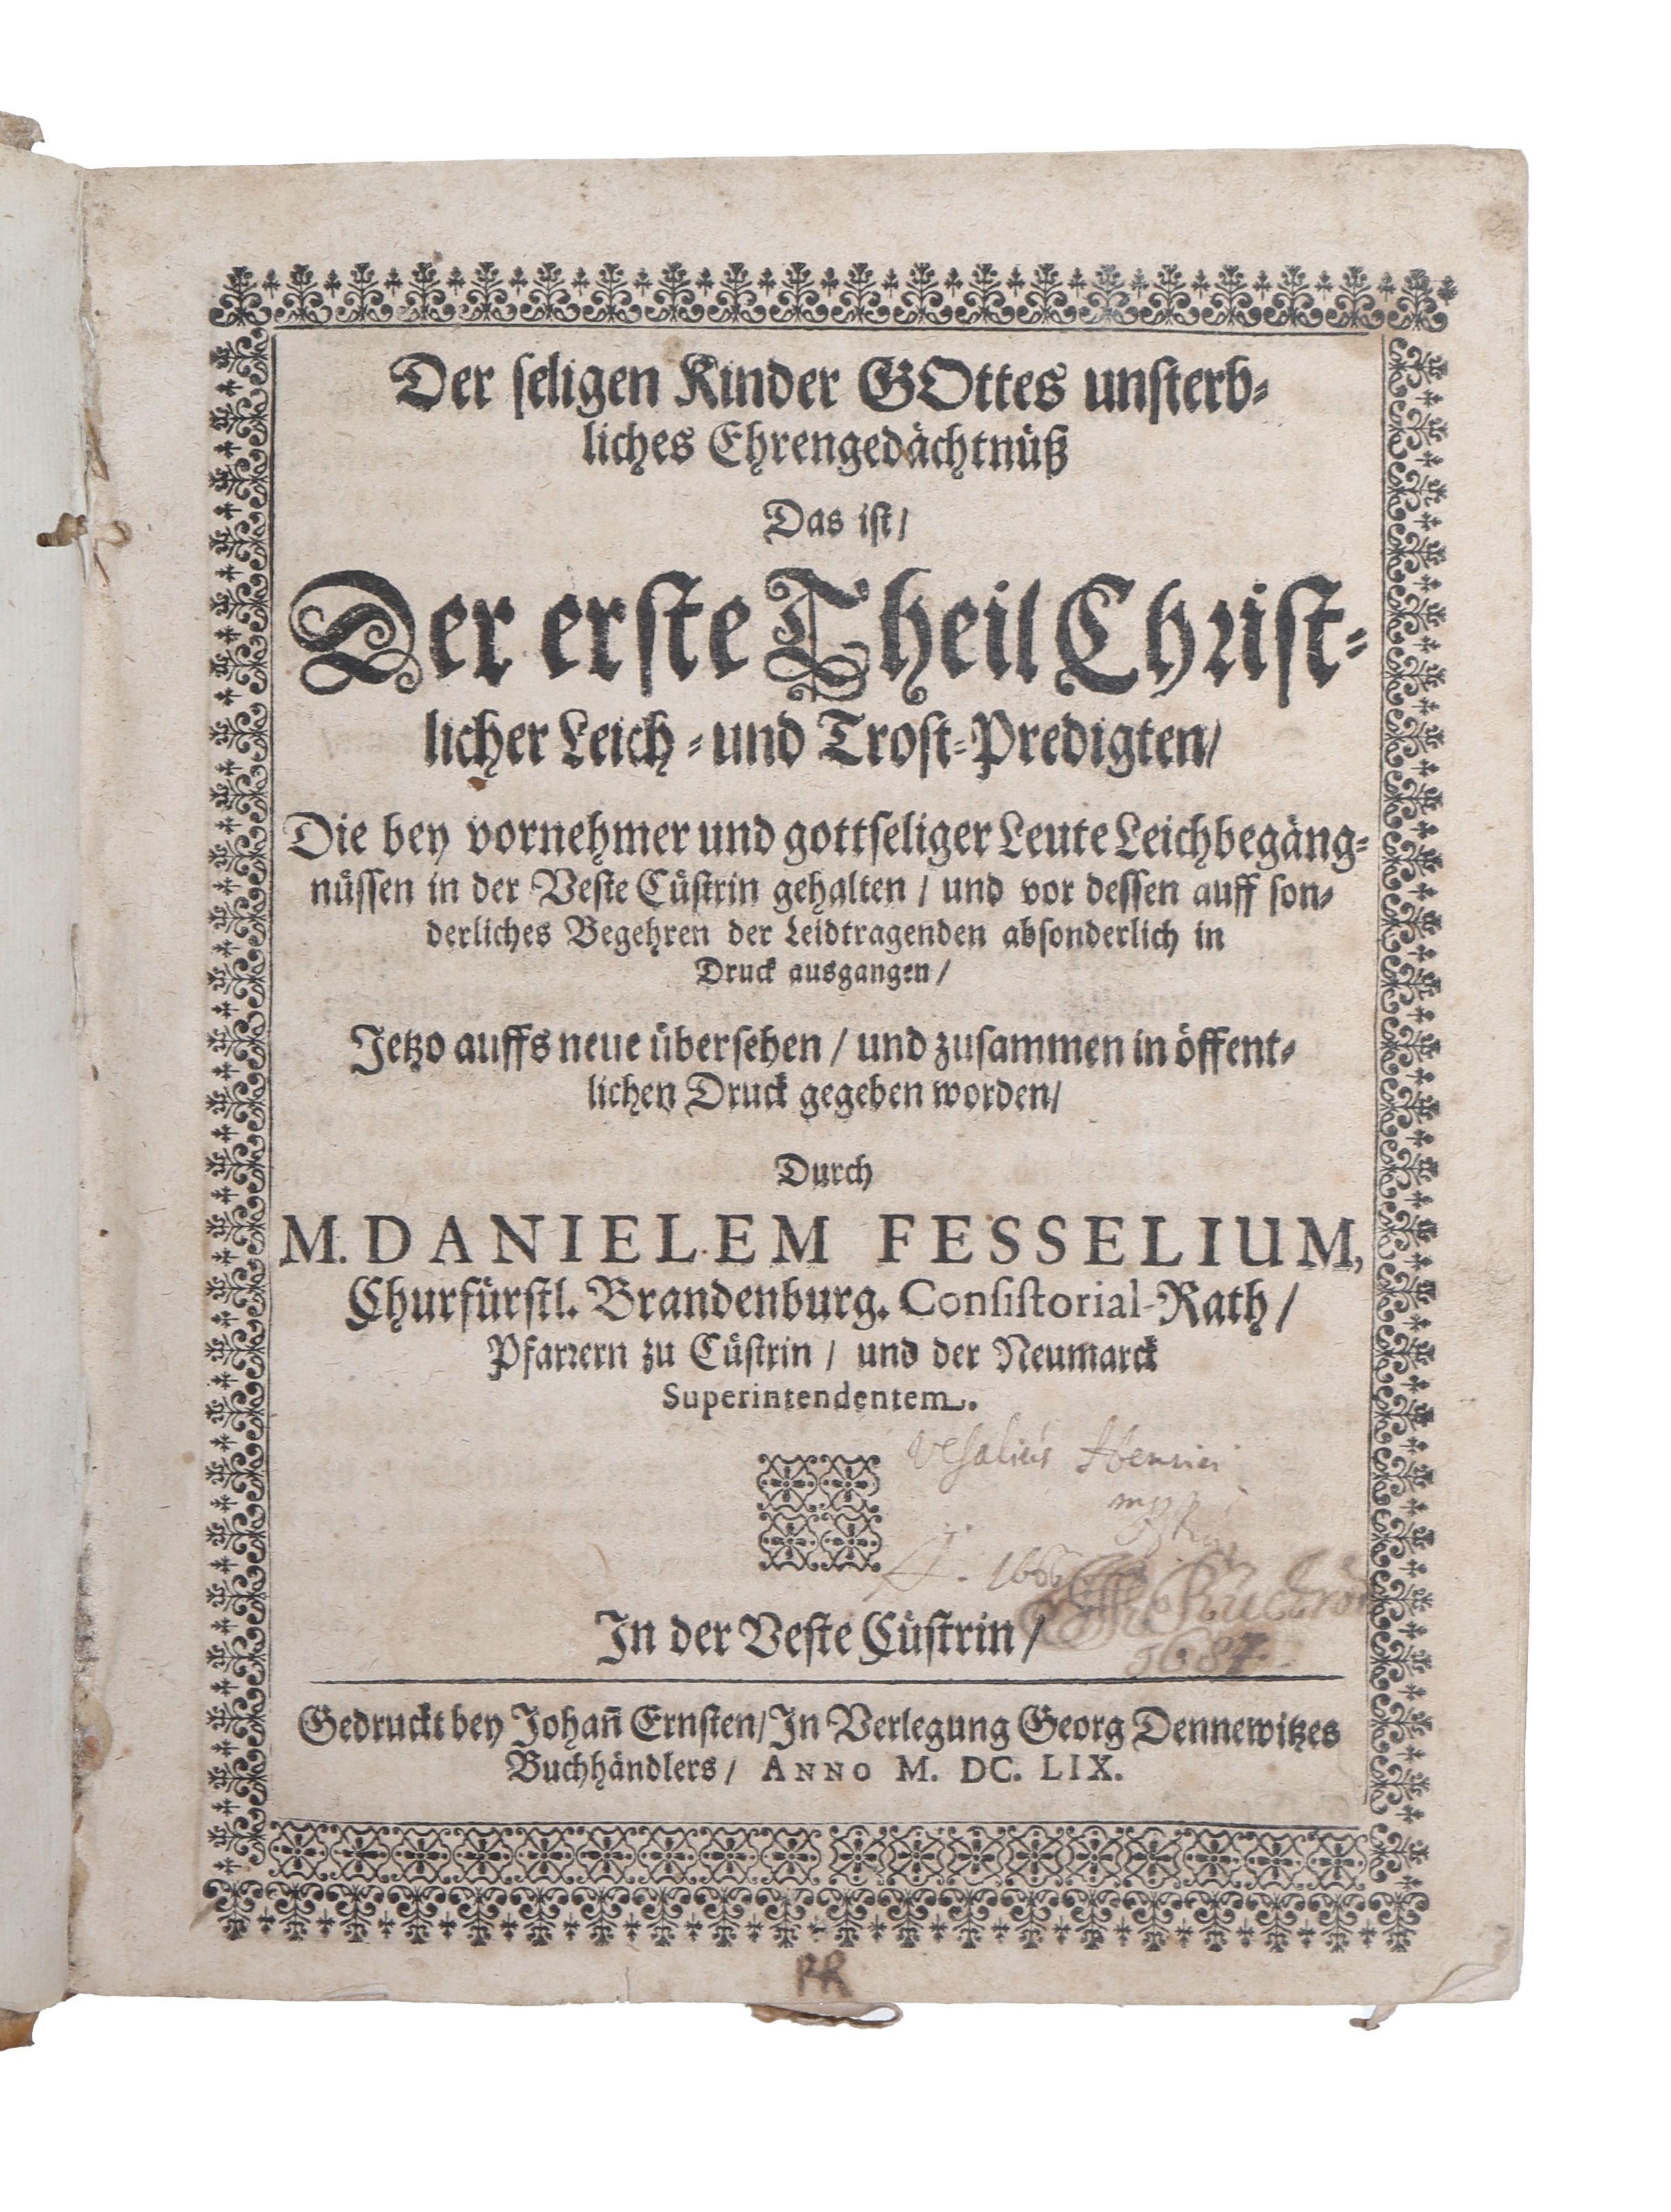 Der seligen Kinder GOttes unsterb-
liches Ehrengedächtnüß
Das ist/
Der erste Theil Christ-
licher Leich- und Trost-Predigten/
Die bey vornehmer und gottseliger Leute Leichbegäng-
nüssen in der Veste Cüstrin gehalten / und vor dessen auff son-
derliches Begehren der Leidtragenden absonderlich in
Druck ausgangen/
Jetzo auffs neue übersehen / und zusammen in öffent-
lichen Druck gegeben worden/
Durch
M. DANIELEM FESSELIUM,
Churfürstl. Brandenburg. Consistorial-Rath/
Pfarrern zu Cüstrin / und der Neumarck
Superintendentem.
Vesalius Henrici
In der Veste Cüstrin/
1687.
Gedruckt bey Johañ Ernsten/ In Verlegung Georg Dennewitzes
Buchhändlers/ ANNO M. DC. LIX.
PR